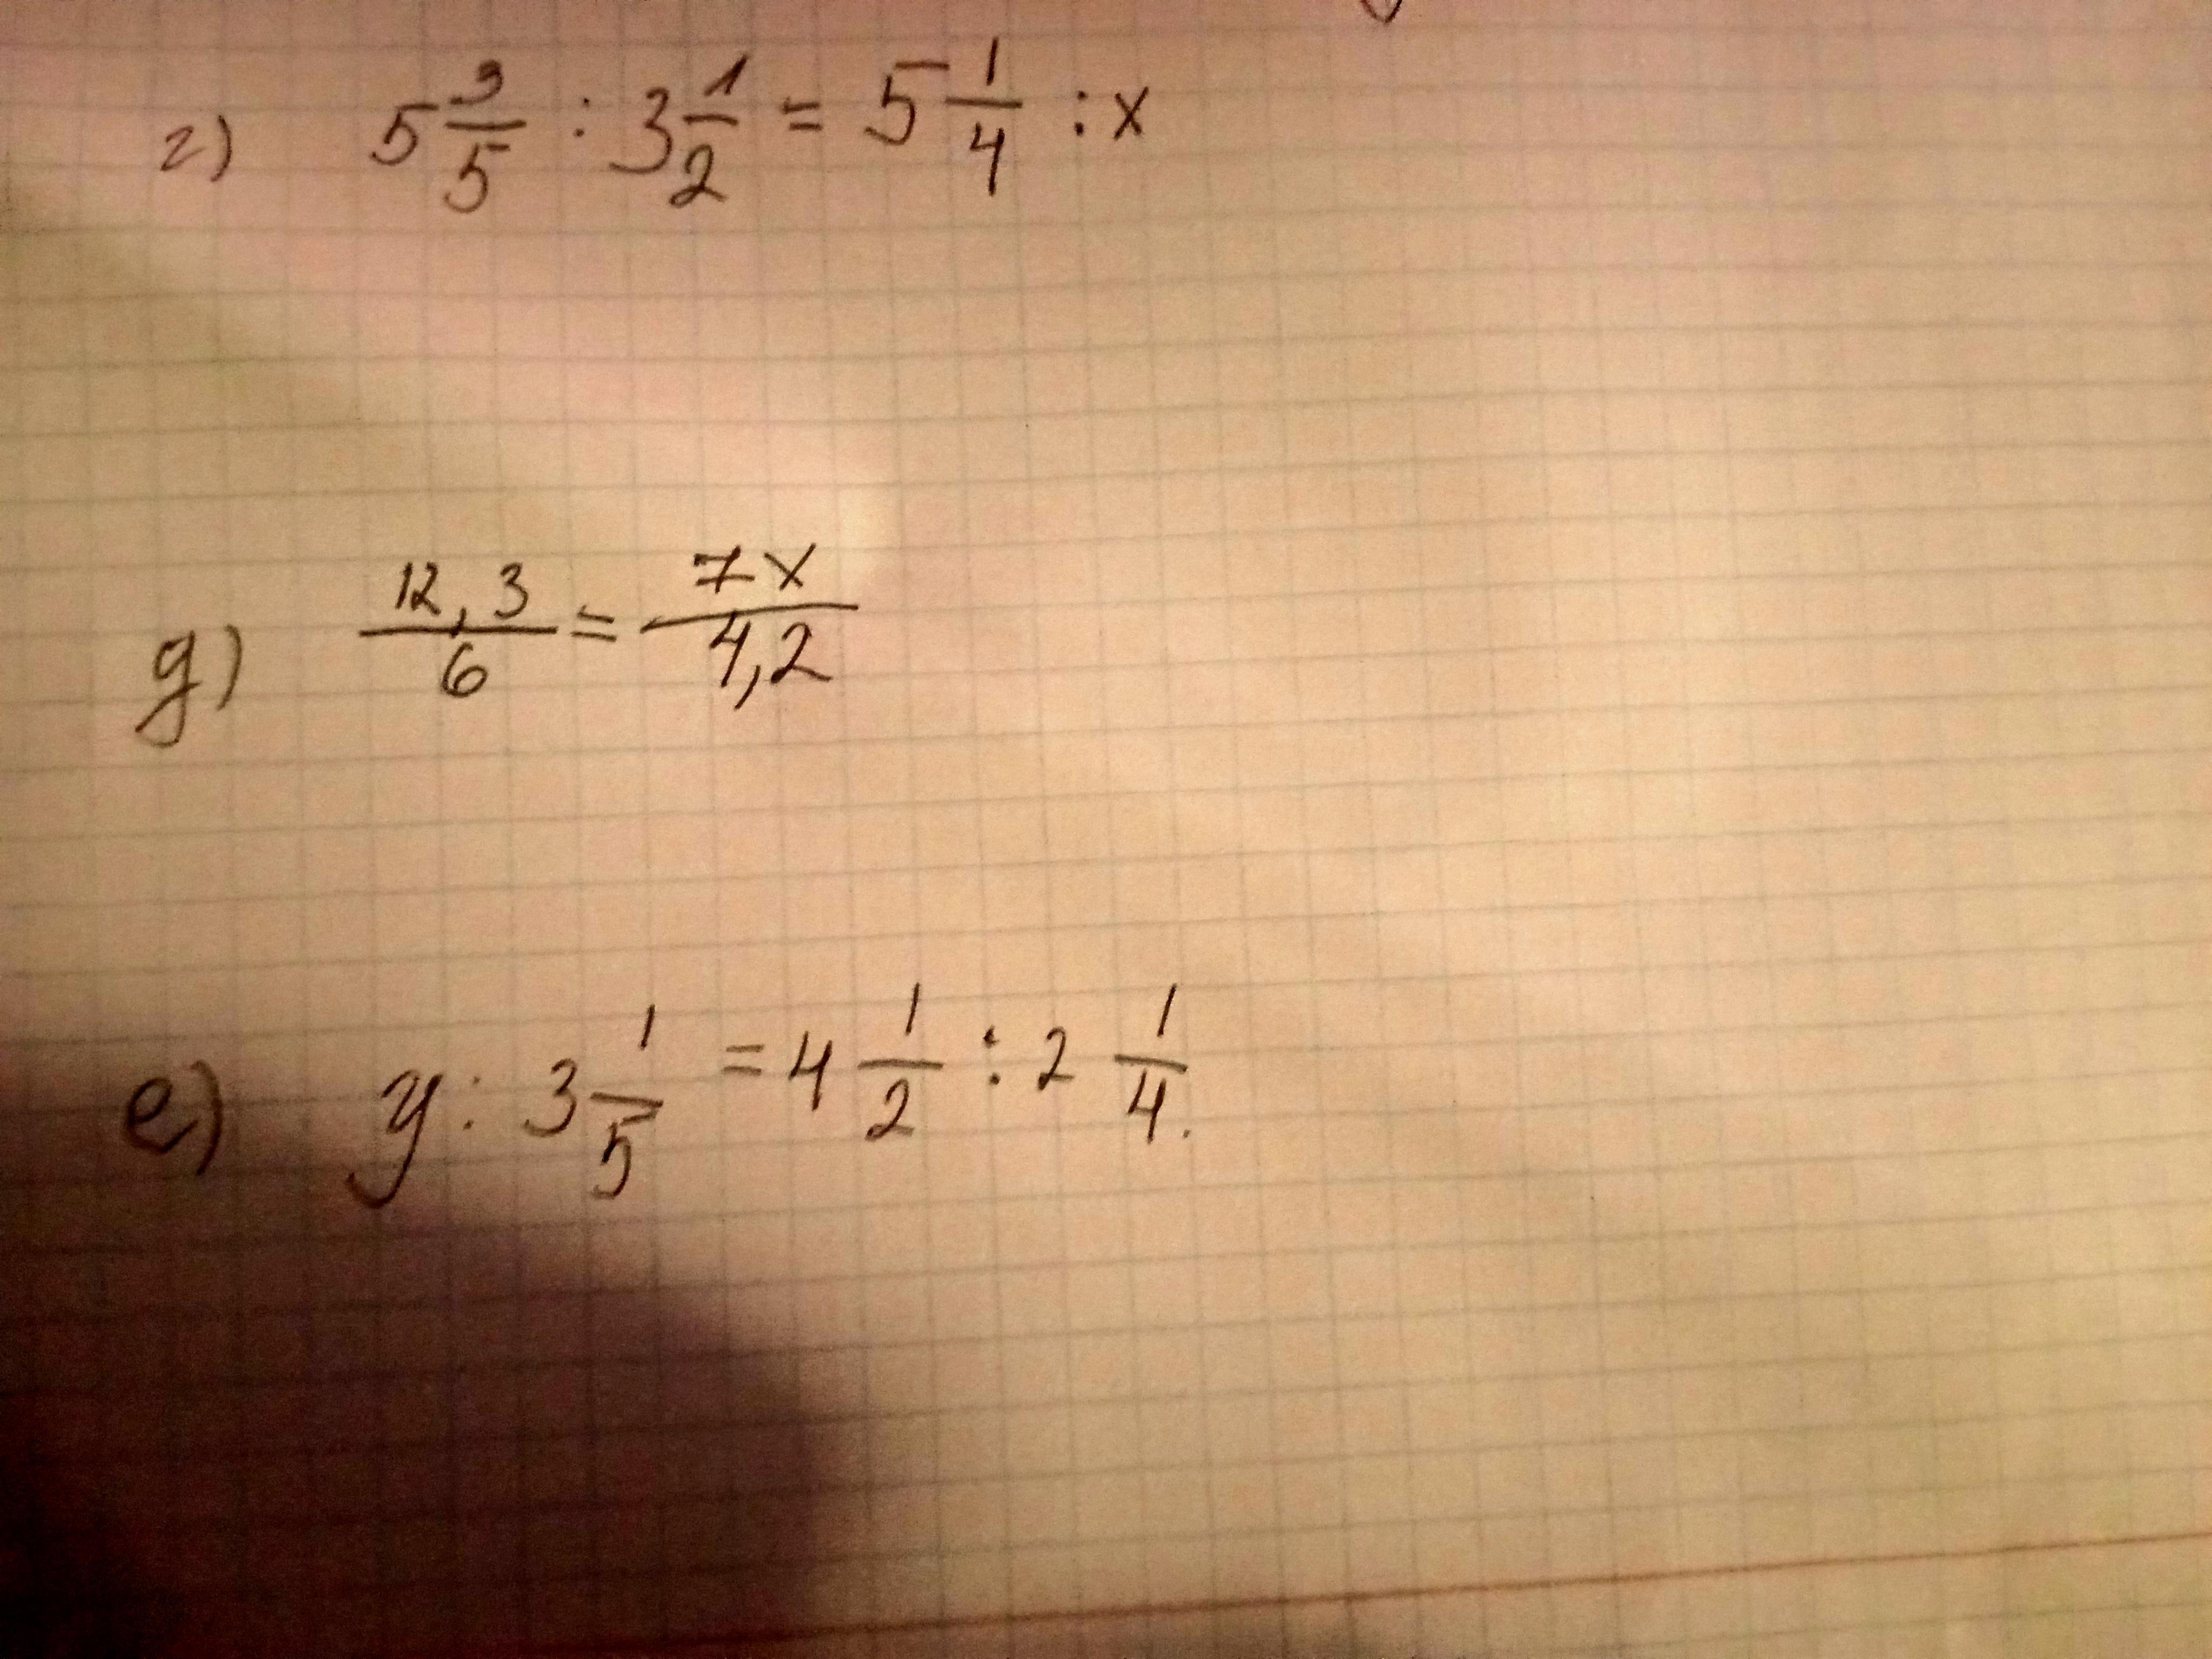 г) 5 3/5 : 3 1/2 = 5 1/4 : x
д) 12,3/6 = 7x/4,2
е) y : 3 1/5 = 4 1/2 : 2 1/4.